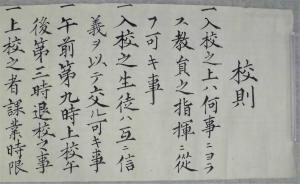 校則
一入校之上ハ何事ニヨラ
ス教員之指揮ニ從
フ可キ事
一入校之生徒ハ互ニ信
義ヲ以テ交ル可キ事
一午前第九時上校午
後第三時退校之事
一上校之者課業時限